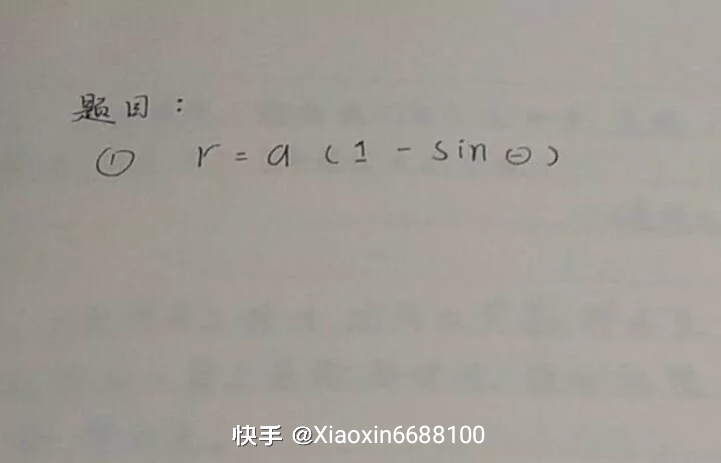 题目：
① r = a (1 - sin θ)
快手 @Xiaoxin6688100